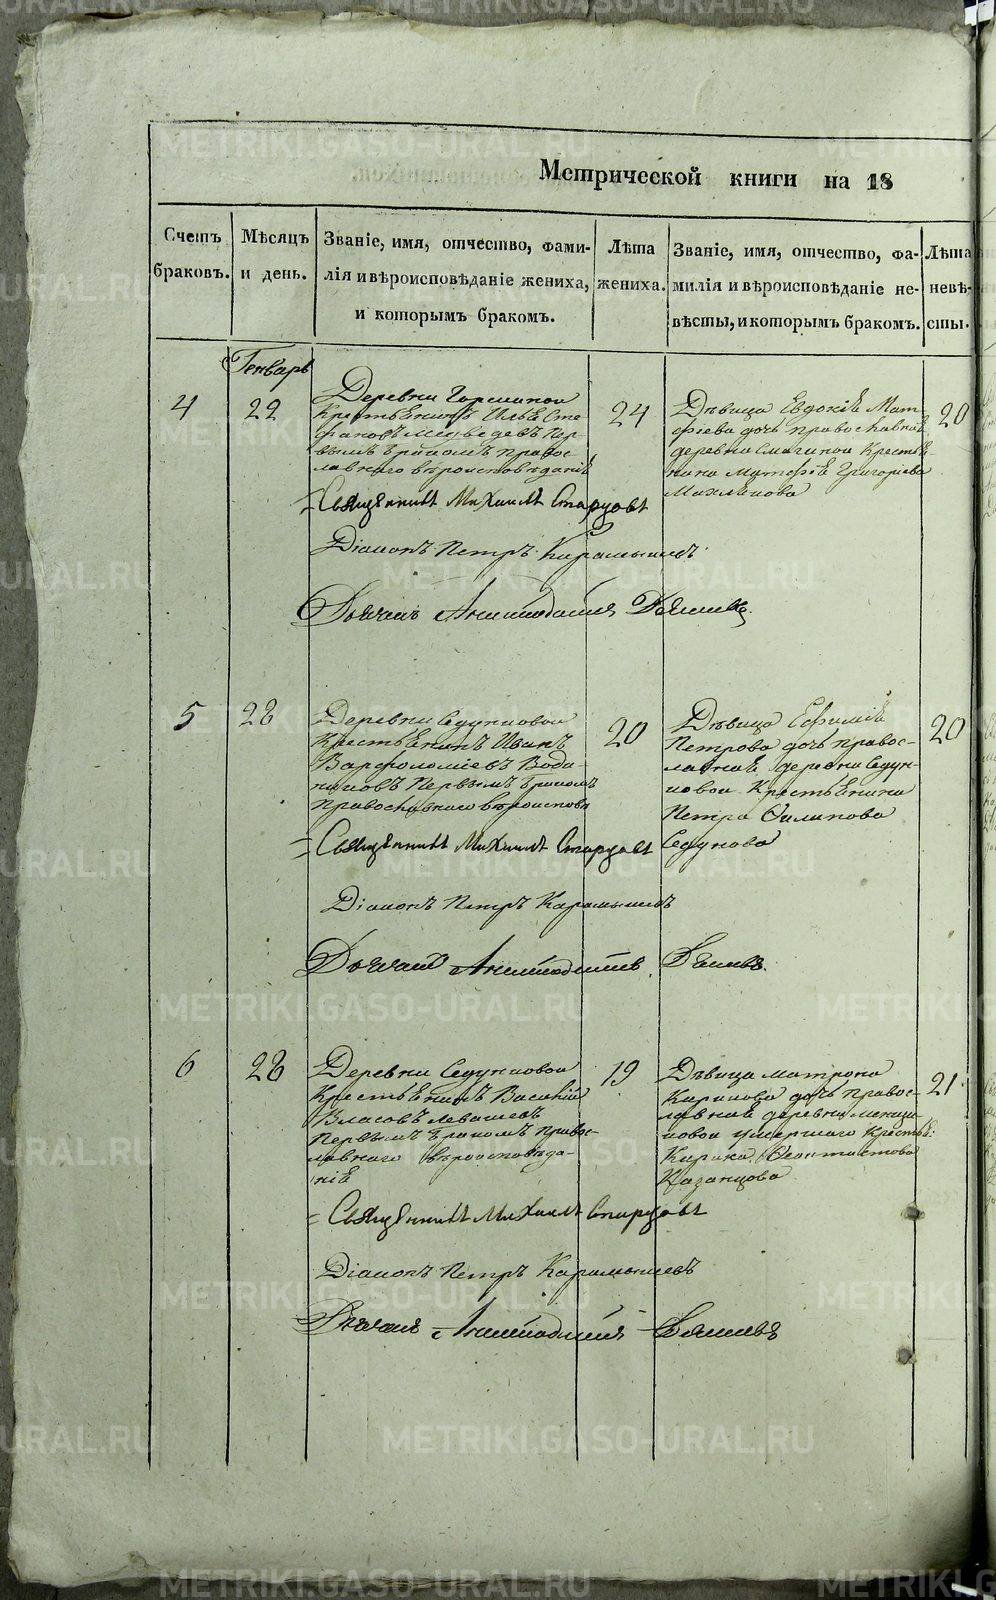 Метрической книги на 18
Счетъ браковъ.
Мѣсяцъ и день.
Званіе, имя, отчество, фами-
лія и вѣроисповѣданіе жениха,
и которымъ бракомъ.
Лѣта
жениха.
Званіе, имя, отчество, фа-
милія и вѣроисповѣданіе не-
вѣсты, и которымъ бракомъ.
Лѣта
невѣ-
сты.
Генварь
4
22
Деревни
Крестьянинъ Илья Сте
фановъ Медведевъ пер
вымъ бракомъ правос
лавнаго вѣроисповѣданія
24
Дѣвица Евдокія Мат
фіева дочь православной
деревни Крестья
нина Матфѣя Григорьева
20
Священникъ Михаилъ Старцовъ
Діаконъ Петръ Карамышевъ
Дьячекъ
5
28
Деревни Седунковой
Крестьянинъ Иванъ
Варфоломіевъ
Первымъ бракомъ
Православнаго вѣроиспов
20
Дѣвица Ефимія
Петрова дочь правос-
лавная деревни Седун
ковой Крестьянина
Петра Филипова
Седунова
20
Священникъ Михаилъ Старцовъ
Діаконъ Петръ Карамышевъ
Дьячекъ
6
28
Деревни Седунковой
Крестьянинъ Василий
Власовъ Левашевъ
Первымъ бракомъ правос-
лавнаго вѣроисповѣда-
нія
19
Дѣвица Матрона
Карпова дочь правос-
лавная деревни
умершаго Крестья:
Казанцова
21
Священникъ Михаилъ Старцовъ
Діаконъ Петръ Карамышевъ
Дьячекъ
METRIKI.GASO-URAL.RU